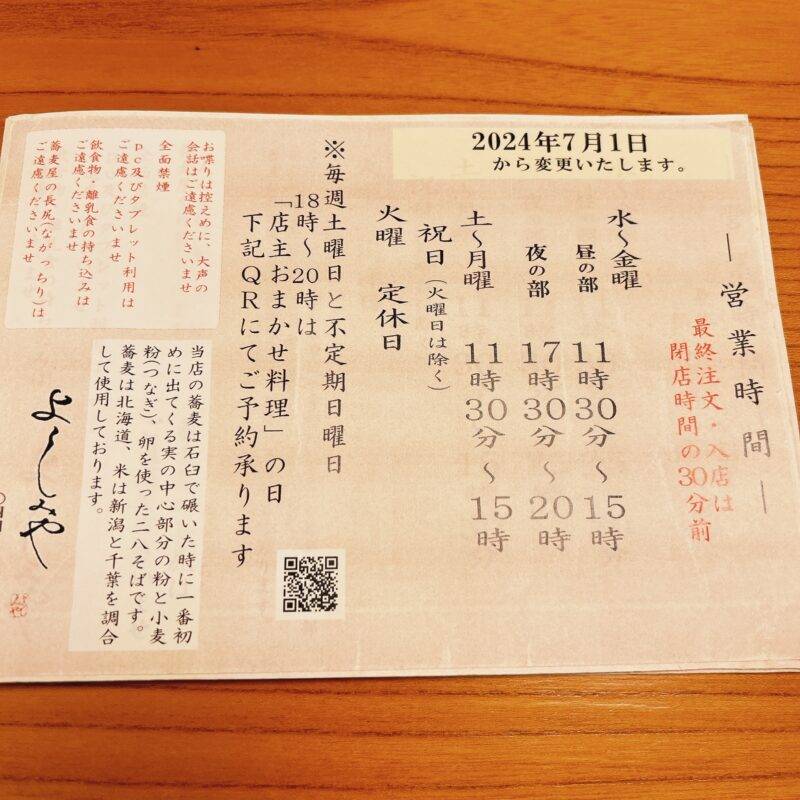 2024年7月1日
から変更いたします。
―営業時間―
最終注文・入店は
閉店時間の30分前
水～金曜
昼の部 11時30分～15時
夜の部 17時30分～20時
土～月曜 11時30分～15時
祝日（火曜日は除く）
火曜 定休日
※毎週土曜日と不定期日曜日
18時～20時は
「店主おまかせ料理」の日
下記QRにてご予約承ります
お喋りは控えめに、大声の
会話はご遠慮くださいませ
全面禁煙
pc及びタブレット利用は
ご遠慮くださいませ
飲食物・離乳食の持ち込みは
ご遠慮くださいませ
蕎麦屋の長尻（ながっちり）は
ご遠慮くださいませ
当店の蕎麦は石臼で碾いた時に一番初
めに出てくる実の中心部分の粉と小麦
粉（つなぎ）、卵を使った二八そばです。
蕎麦は北海道、米は新潟と千葉を調合
して使用しております。